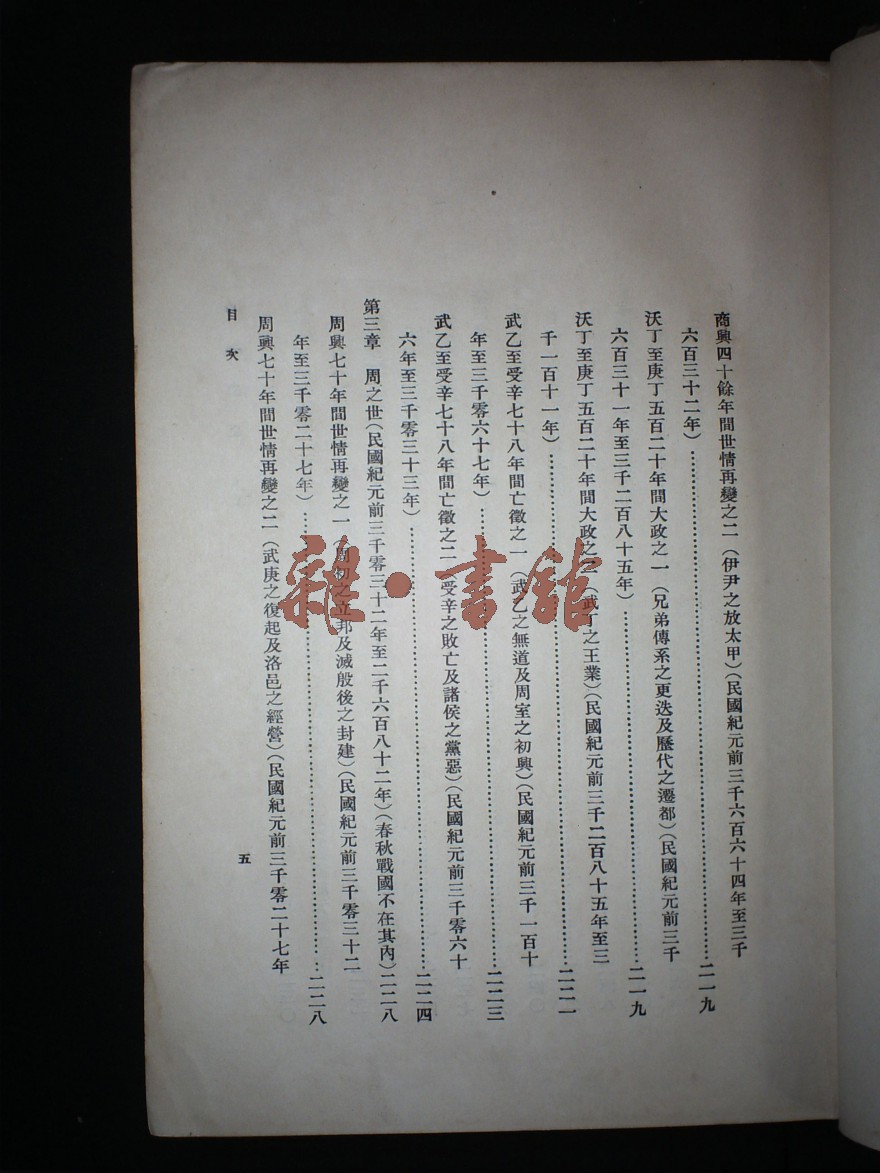 商興四十餘年間世情再變之二(伊尹之放太甲)(民國紀元前三千六百六十四年至三千
六百三十二年)……二一九
沃丁至庚丁五百二十年間大政之一(兄弟傳系之更迭及歷代之遷都)(民國紀元前三千
六百三十一年至三千二百八十五年)……二一九
沃丁至庚丁五百二十年間大政之二(武丁之王業)(民國紀元前三千二百八十五年至三
千一百十一年)……二二一
武乙至受辛七十八年間亡徵之一(武乙之無道及周室之初興)(民國紀元前三千一百十
年至三千零六十七年)……二二三
武乙至受辛七十八年間亡徵之二(受辛之敗亡及諸侯之黨惡)(民國紀元前三千零六十
六年至三千零三十三年)……二二四
第三章 周之世(民國紀元前三千零三十二年至二千六百八十二年)(春秋戰國不在其內)二二八
周興七十年間世情再變之一(周初之立邦及滅殷後之封建)(民國紀元前三千零三十二
年至三千零二十七年)……二二八
周興七十年間世情再變之二(武庚之復起及洛邑之經營)(民國紀元前三千零二十七年
目次
五
雜·書館